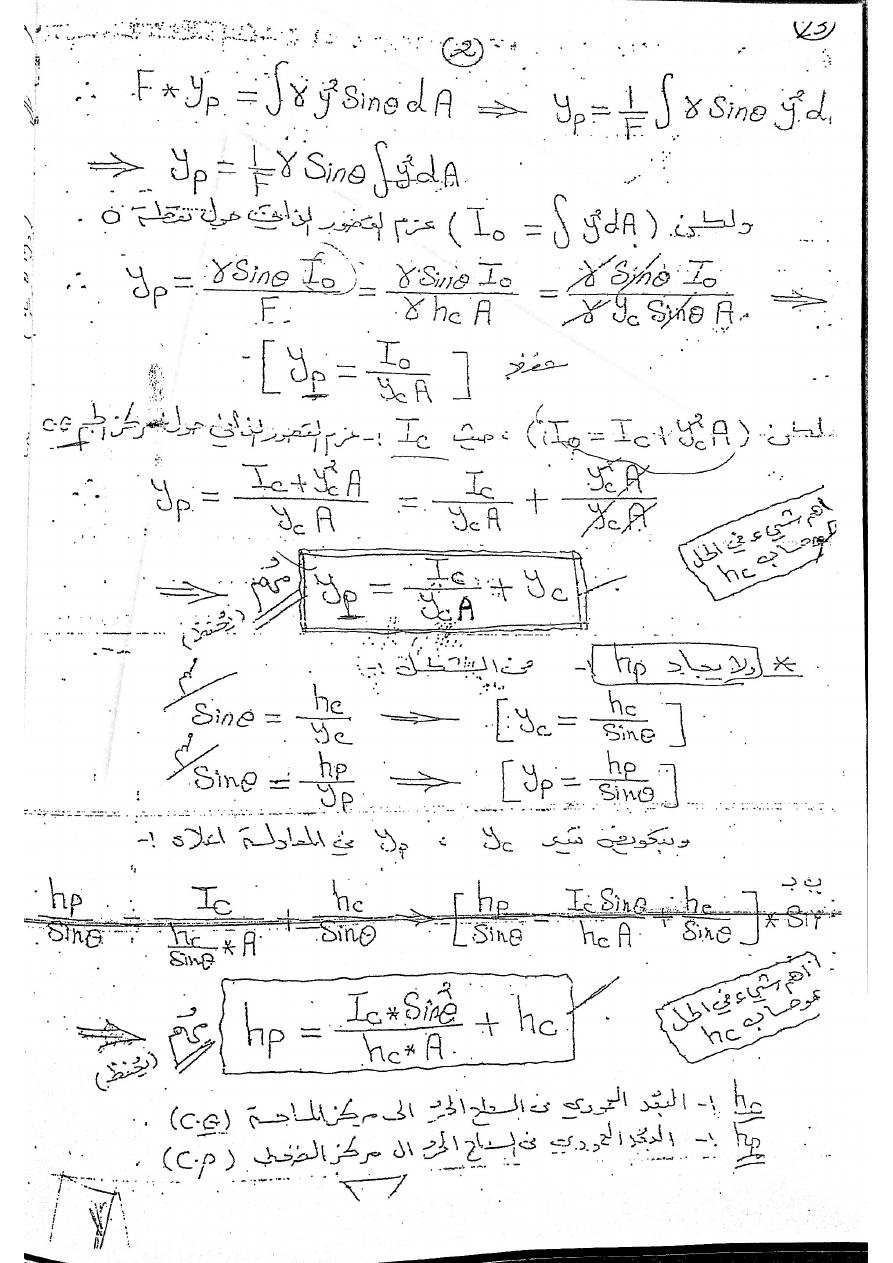 (2)
∴ F * yₚ = ∫ γ y² Sinθ dA ⇒ yₚ = 1/F ∫ γ Sinθ y² d
⇒ yₚ = 1/F γ Sinθ ∫ y² dA
ولكن (I₀ = ∫ y² dA) عزم القصور الذاتي حول نقطة O
∴ yₚ = γ Sinθ I₀ / F = γ Sinθ I₀ / γ hc A = γ Sinθ I₀ / γ yc Sinθ A ⇒
[yₚ = I₀ / yc A] حفظ
لكن (I₀ = Ic + yc² A) ، حيث Ic :- عزم القصور الذاتي حول مركز الجسم C.G
∴ yₚ = Ic + yc² A / yc A = Ic / yc A + yc² A / yc A
اهم شيء في الحل
هو حساب hc
⇒ مهم yₚ = Ic / yc A + yc
(يُحفظ)
* ولايجاد hp :- من الشكل :-
Sinθ = hc / yc ⇒ [yc = hc / Sinθ]
Sinθ = hp / yp ⇒ [yp = hp / Sinθ]
وبتعويض yc ، yp في المعادلة اعلاه :-
hp / Sinθ = Ic / (hc / Sinθ * A) + hc / Sinθ ⇒ [hp / Sinθ = Ic Sinθ / hc A + hc / Sinθ] * Sin
اهم شيء في الحل
هو حساب hc
⇒ مهم hp = Ic * Sin²θ / hc * A + hc
(يُحفظ)
hc :- البعد العمودي من السطح الحر الى مركز المساحة (C.G) .
hp :- البعد العمودي من السطح الحر الى مركز الضغط (C.P) .